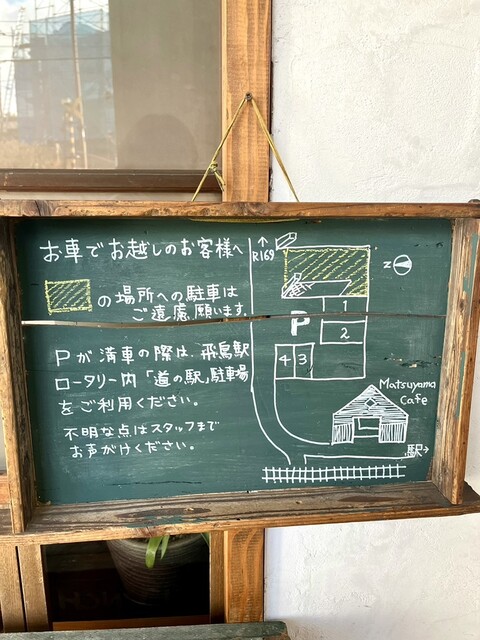 お車でお越しのお客様へ
の場所への駐車は
ご遠慮願います。
Pが満車の際は、飛鳥駅
ロータリー内「道の駅」駐車場
をご利用ください。
不明な点はスタッフまで
お声がけください。
↑
R169
N
1
P
2
4 3
Matsuyama
Cafe
駅→